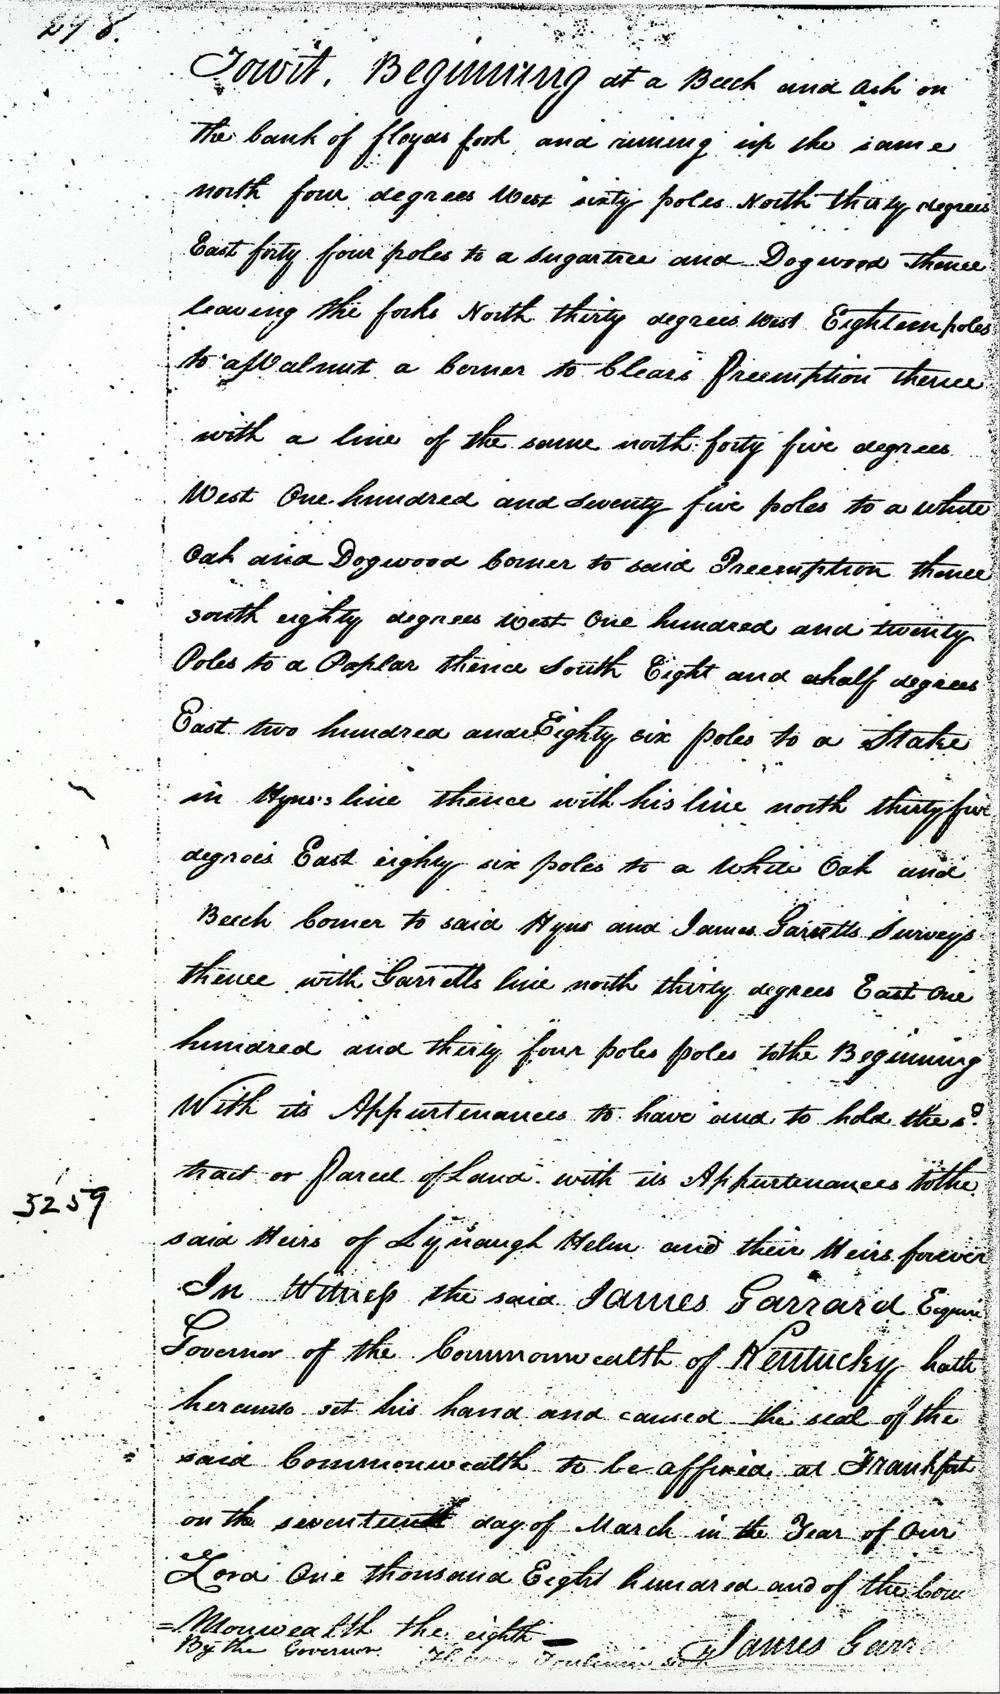 298.
Towit. Beginning at a Beech and Ash on
the bank of floyds fork and runing up the same
north four degrees West sixty poles North thirty degrees
East forty four poles to a sugartree and Dogwood thence
leaving the forks North thirty degrees West Eighteen poles
to a Walnut a Corner to Clears Preemption thence
with a line of the same north forty five degrees
West One hundred and seventy five poles to a white
Oak and Dogwood Corner to said Preemption thence
south eighty degrees West One hundred and twenty
Poles to a Poplar thence South Eight and ahalf degrees
East two hundred and Eighty six poles to a Stake
in Hyns's line thence with his line north thirty five
degrees East eighty six poles to a White Oak and
Beech Corner to said Hyns and James Garretts Surveys
thence with Garretts line north thirty degrees East One
hundred and thirty four poles poles tothe Beginning
With its Appurtenances to have and to hold the sd.
tract or Parcel of Land with its Appurtenances tothe
5259
said Heirs of Lynaugh Helm and their Heirs forever
In Witness the said James Garrard Esquire
Governor of the Commonwealth of Kentucky hath
hereunto set his hand and caused the seal of the
said Commonwealth to be affixed at Frankfort
on the seventeenth day of March in the Year of Our
Lord One thousand Eight hundred and of the Com
=Monwealth the eighth
By the Governor James Garr
Toulmin